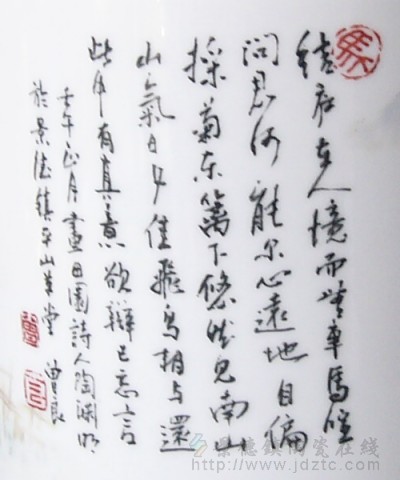 结庐在人境而無車馬喧
問君何能尔心遠地自偏
採菊东籬下悠然見南山
山氣日夕佳飛鳥相与還
此中有真意欲辯已忘言
壬午正月畫田園詩人陶渊明
於景德鎮平山草堂 曾良
景德镇陶瓷在线
http://www.jdztc.com